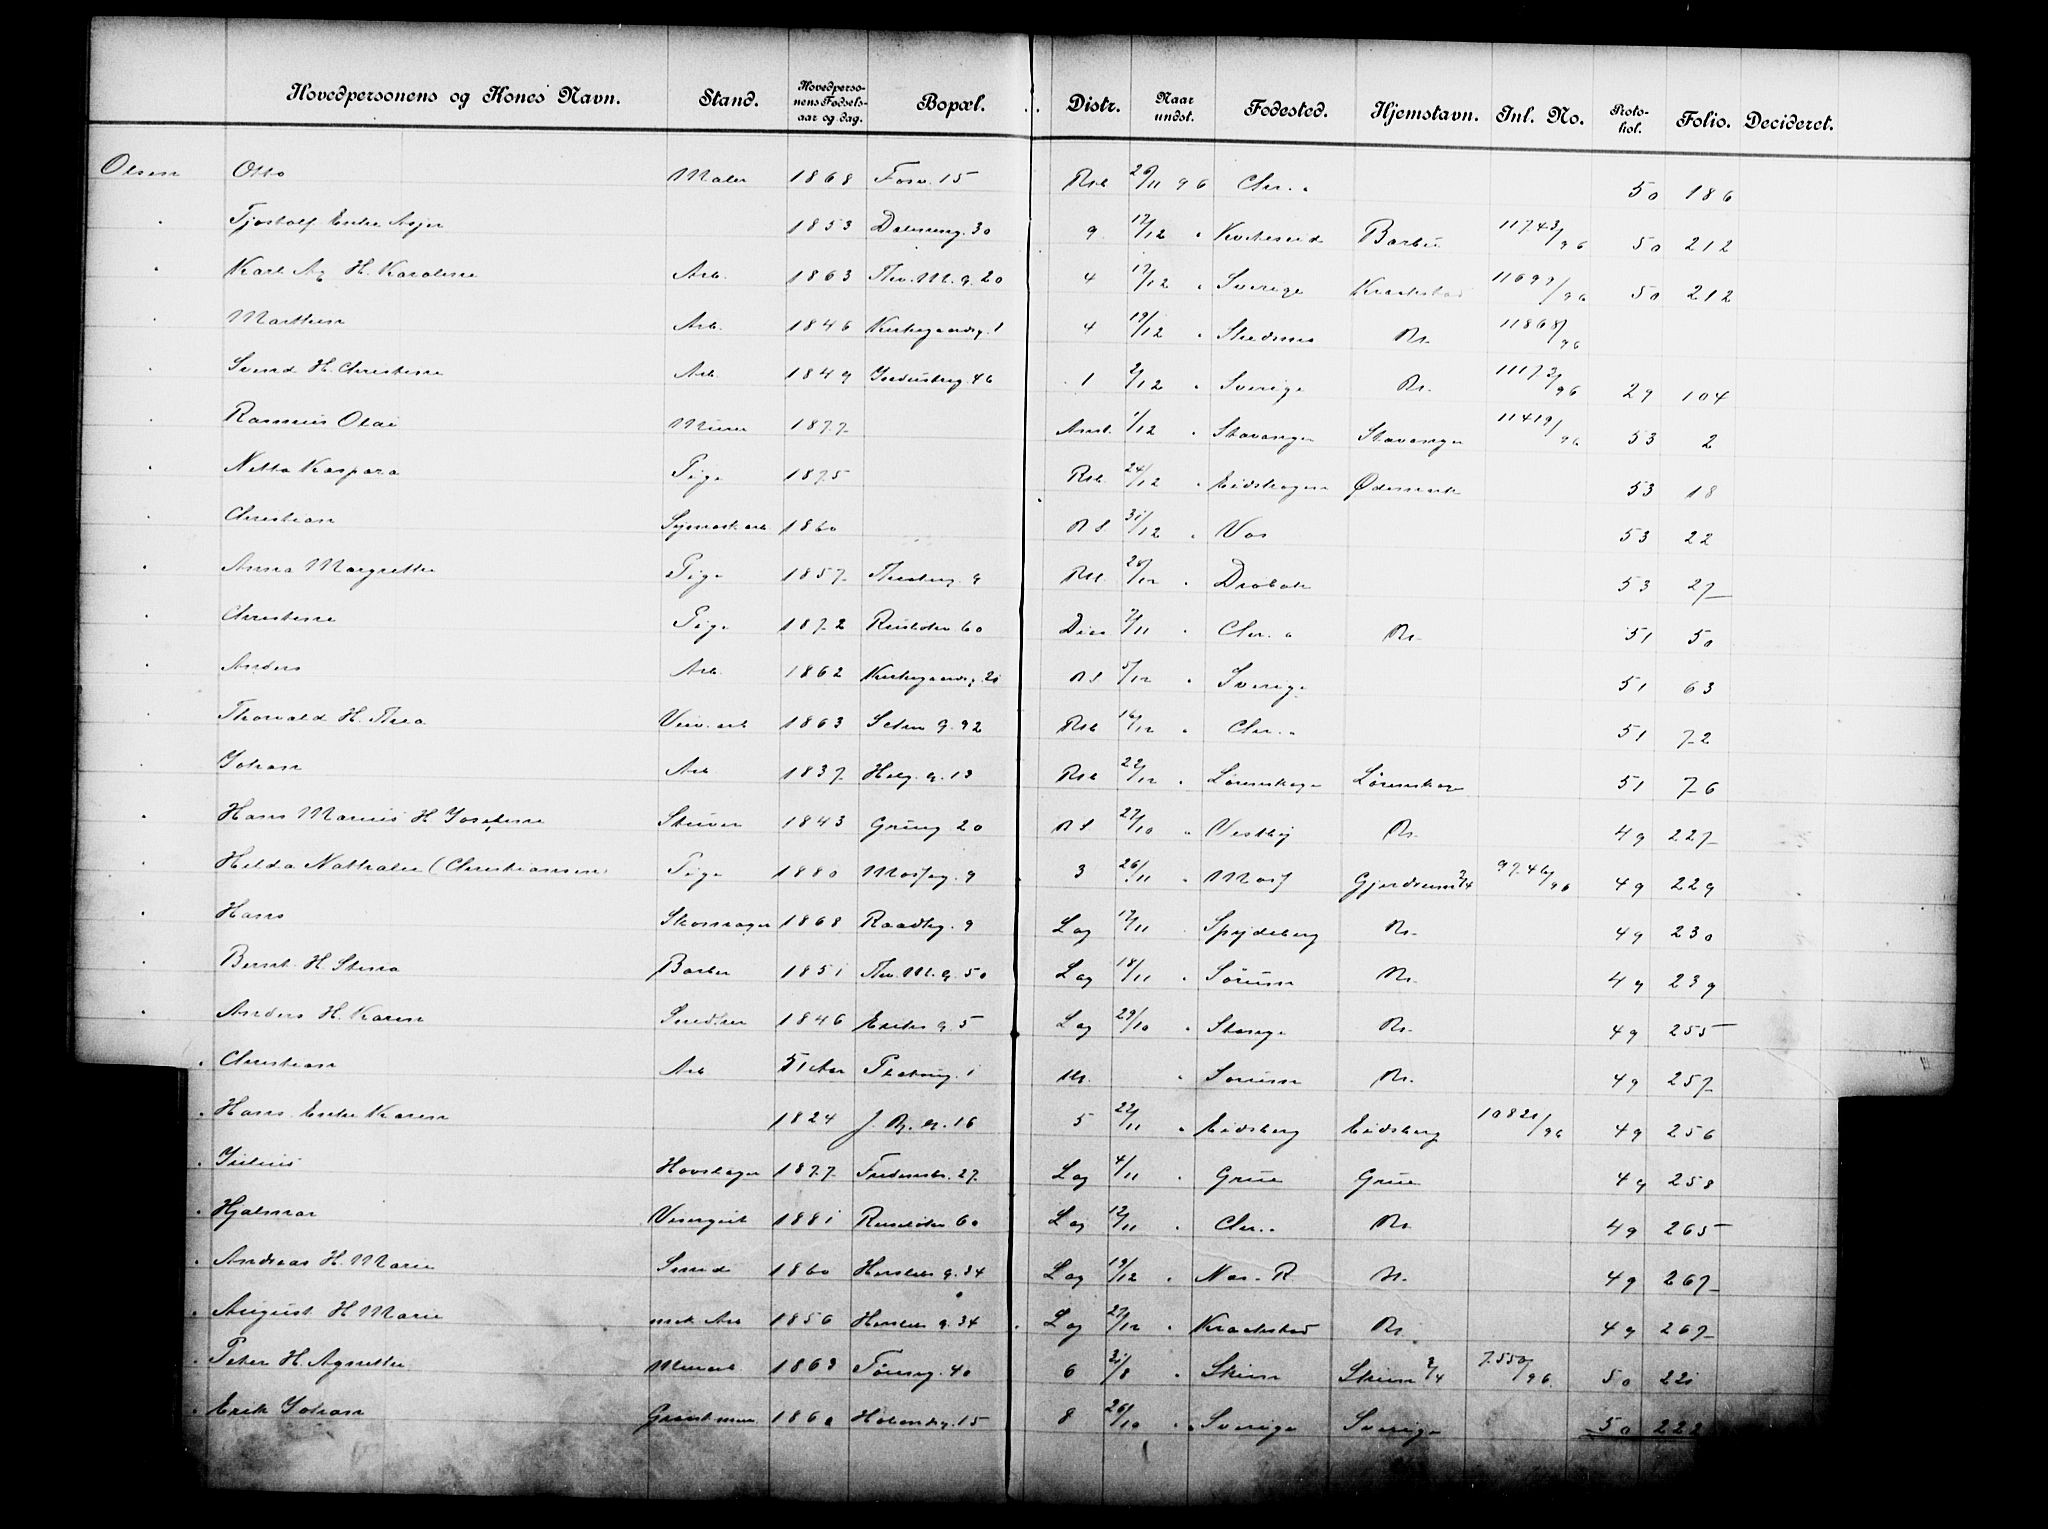 Hovedpersonens og Kones Navn. Stand. Hovedperso-nens Fødsels-aar og dag. Bopæl. Distr. Naar undst. Fødested. Hjemstavn. Inl. No. Proto-kol. Folio. Decideret.
Olsen Otto Maler 1868 Fosv. 15 Rst 26/11 96 Chr.a 50 186
" Tjostolf Enke Asjer 1853 Dalsveg. 30 9 17/12 " Barbu 11743/96 50 212
" Karl Ag H. Karoline Arb. 1863 Thv. M. g. 20 4 17/12 " Sverige Kraakstad 11699/96 50 212
" Marthin Arb. 1846 Kirkegaardsg. 1 4 19/12 " Skedsmo Kr. 11868/96
" Svend H. Christine Arb. 1849 Industrig. 46 1 2/12 " Sverige Kr. 11173/96 29 104
" Rasmus Olai Murer 1877 Amt. 1/12 " Stavanger Stavanger 11419/96 53 2
" Netta Kaspara Pige 1875 Rst. 24/12 " Eidskogen Ødemark 53 18
" Christian 1860 RS 31/12 " Vos 53 22
" Anna Margrethe Pige 1857 Thorbg. 9 Rst. 28/12 " Drøbak 53 27
" Christine Pige 1872 Ruseløkv. 60 Dias 7/11 " Chr.a Kr. 51 50
" Anders Arb. 1862 Kirkegaardsg. 21 RS 5/12 " Sverige 51 63
" Thorvald H. Thea Veiv. arb 1863 Seterg. 92 Rst 16/12 " Chr.a 51 72
" Johan Arb 1837 Helg. g. 13 Rst 22/12 " Lørenskoge Lørenskoge 51 76
" Hans Marius H Josefine Skriver 1843 Grüng 20 RS 27/10 " Vestby Kr. 49 227
" Hilda Nathalie (Christiansen) Pige 1880 Mosseg. 9 3 26/11 " Moss Gjerdrum 2/4 9746/96 49 229
" Hans Skomager 1868 Raadhg. 9 Lag 17/11 Spydeberg Kr. 49 230
" Bernt H. Stina Barber 1851 Thv. M. g. 50 Lag 18/11 " Sørum Kr. 49 239
" Anders H. Karen Snedker 1846 Eriks g. 5 Lag 29/10 " Stange Kr. 49 255
" Christian Arb 51 Aar Platoug. 1 " Sørum Kr. 49 257
" Hans Enke Karen 1824 J. R. g. 16 5 22/11 " Eidsberg Eidsberg 10821/96 49 256
" Julius Hovslager 1877 Frederiksb. 27 Lag 4/11 " Grue Grue 49 258
" Hjalmar Visergut 1881 Ruseløkv 60 Lag 12/11 " Chr.a Kr. 49 265
" Andreas H. Marie Smed 1860 Hersleb g. 34 Lag 19/12 " Næs. R Kr. 49 267
" August H Marie mek Arb 1856 Hersleb g. 34 Lag 27/12 " Kraakstad Kr. 49 267
" Peter H. Agnethe Murarb 1863 Tørusg. 40 6 31/8 " Skien Skien 2/4 7550/96 50 221
" Erik Johan 1860 Holsendg. 15 8 26/10 " Sverige Sverige 50 222